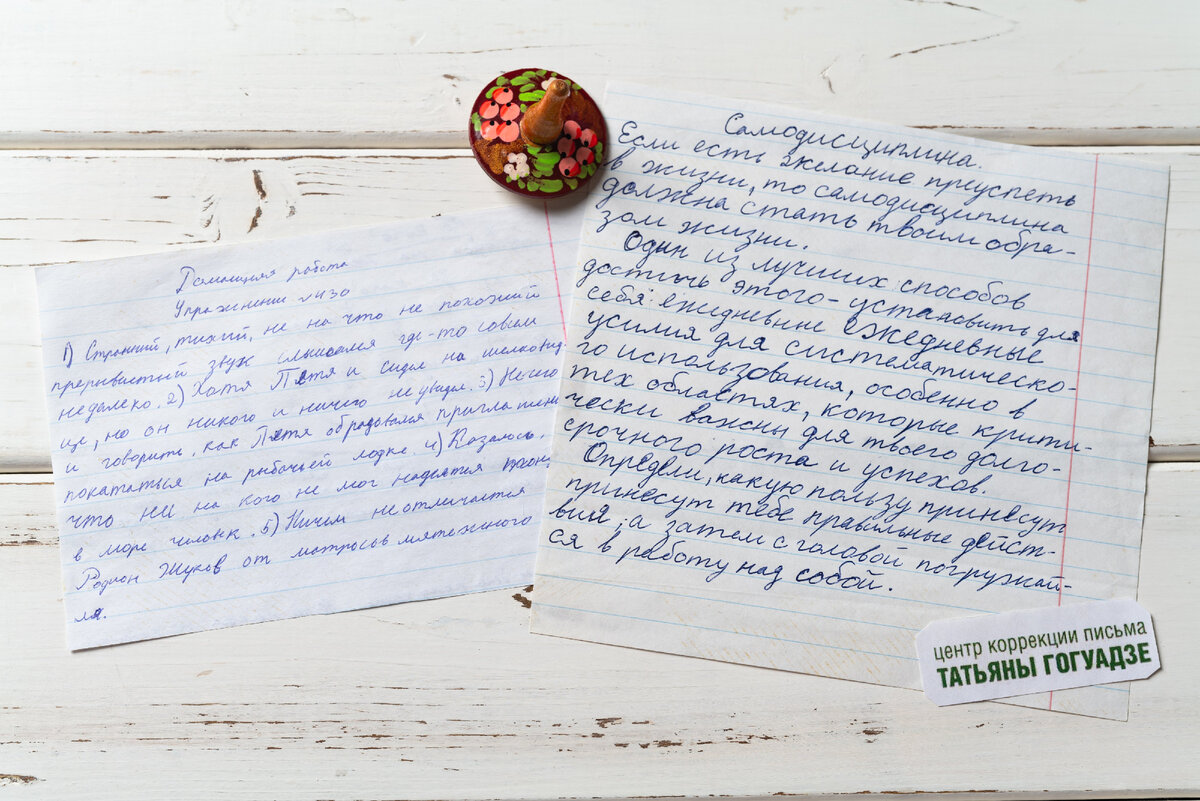 Домашняя работа
Упражнение №430
1) Странный, тихий, не на что не похожий
прерывистый звук слышался где-то совсем
недалеко. 2) Хотя Петя и сидел на
ще, но он никого и ничего не увидел. 3) Нечего
и говорить, как Петя обрадовался
покататься на рыбачьей лодке. 4) Казалось,
что ни на кого не мог надеятся
в море человек. 5) Ничем не отличается
Родион Жуков от матросов мятежного
ля.
Самодисциплина.
Если есть желание преуспеть
в жизни, то самодисциплина
должна стать твоим обра-
зом жизни.
Один из лучших способов
достичь этого - установить для
себя ежедневные ежедневные
усилия для систематическо-
го использования, особенно в
тех областях, которые крити-
чески важны для твоего долго-
срочного роста и успехов.
Определи, какую пользу принесут
принесут тебе правильные дейст-
вия, а затем с головой погружай-
ся в работу над собой.
центр коррекции письма
ТАТЬЯНЫ ГОГУАДЗЕ